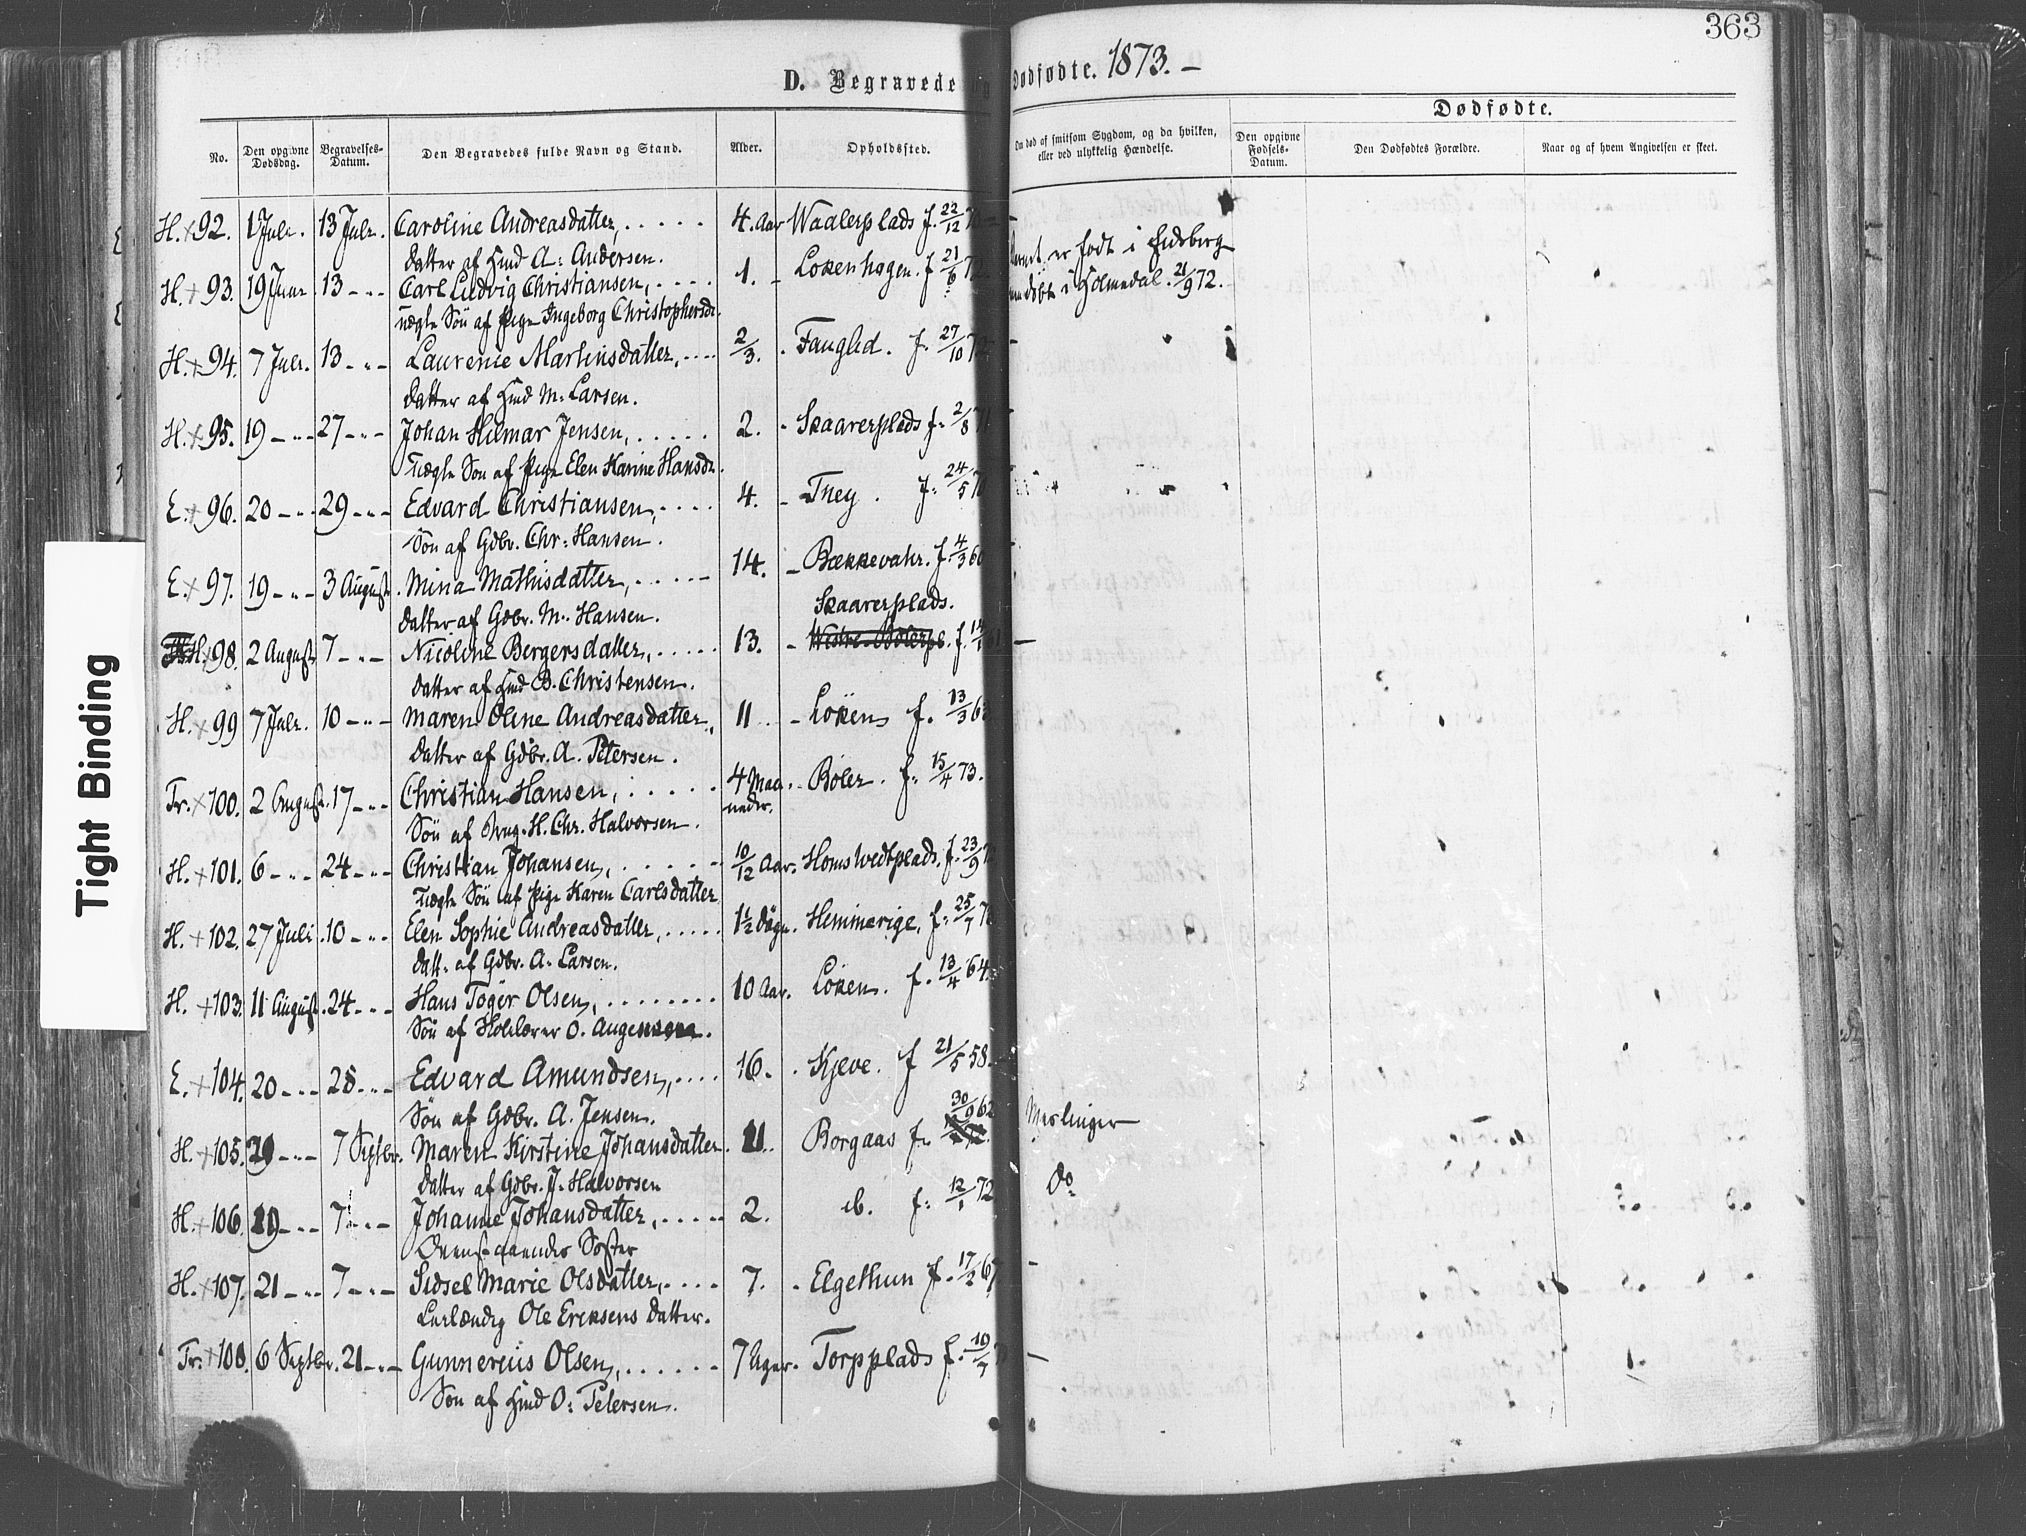 363
D. Begravede og Dødfødte. 1873. –
Dødfødte.
No.
Den opgivne Dødsdag.
Begravelses-Datum.
Den Begravedes fulde Navn og Stand.
Alder.
Opholdssted.
Om død af smitsom Sygdom, og da hvilken, eller ved ulykkelig Hændelse.
Den opgivne Fødsels-Datum.
Den Dødfødtes Forældre.
Naar og af hvem Angivelsen er skeet.
H. + 92. 1 Juli. 13 Juli. Caroline Andreasdatter, 4. Aar Waalerplads f. 22/12
Datter af Hmd A. Andersen.
H. + 93. 19 Juni. 13 - " - Carl Ludvig Christiansen, 1. - Løkenhagen. f 21/6 72 er født i Eidsberg
uægte Søn af Pige Ingeborg Christophersd. døbt i Holmedal. 21/9 72.
H. + 94. 7 Juli. 13 - " - Laurence Martinsdatter, 2/3. Fanglid. f. 27/10 72
Datter af Hmd M. Larsen.
H. + 95. 19 - " - 27 - " - Johan Hilmar Jensen, 2. - Skaarerplads f. 2/8 71
Uægte Søn af Pige Elen Karine Hansdr.
E. + 96. 20 - " - 29 - " - Edvard Christiansen, 4. - Tney. f. 24/5
Søn af Gdbr. Chr. Hansen.
E. + 97. 19 - " - 3 August. Mina Mathisdatter, 14. - Bækkevahr. f. 4/3 60
Datter af Gdbr. M. Hansen. Skaarerplads.
H. 98. 2 August 7 - " - Nicoline Bergersdatter, 13. - Westre Bølerpl. f. 61 -
Datter af Hmd B. Christensen.
H. + 99 7 Juli. 10 - " - Maren Oline Andreasdatter, 11 - Løken f. 13/3 62
Datter af Gdbr. A. Petersen.
Tr. + 100. 2 August. 17 - " - Christian Hansen, 4 Maaneder. Bøler. f. 15/4 73.
Søn af H. Chr. Halvorsen.
H. + 101. 6 - " - 24 - " - Christian Johansen, 10/12 Aar. Homstvedtplads. f. 23/9 72
Uægte Søn af Pige Karen Carlsdatter
H. + 102. 27 Juli. 10 - " - Elen Sophie Andreasdatter, 1½ Døgn. Hemmerige, f. 25/7 73
Datt. af Gdbr. A. Larsen.
H. + 103. 11 August. 24 - " - Hans Tøger Olsen, 10 Aar. Løken. f. 13/4 64.
Søn af Skolelærer O. Augensen.
E. + 104. 20 - " - 28 - " - Edvard Amundsen, 16. - Kjeve. f 21/5 58.
Søn af Gdbr. A. Jensen.
H. + 105. 20 - " - 7 Septbr. Maren Kirstine Johansdatter. 11. Borgaas f. 30/9 62 Meslinger
Datter af Gdbr. J. Halvorsen
H. + 106. - " - 7 - " - Johanne Johansdatter, 2. ib. f. 12/1 72 Do.
Ovenstaaendes Søster
H. + 107. 21 - " - 7 - " - Sidsel Marie Olsdatter, 7. - Elgethun f. 17/2 67 -
Leilænding Ole Eriksens Datter.
Tr. + 108. 6 Septbr. 21 - " - Gunnerius Olsen, 7 Uger. Torpplads f. 19/7 -
Søn af Hmd O. Petersen.
Tight Binding